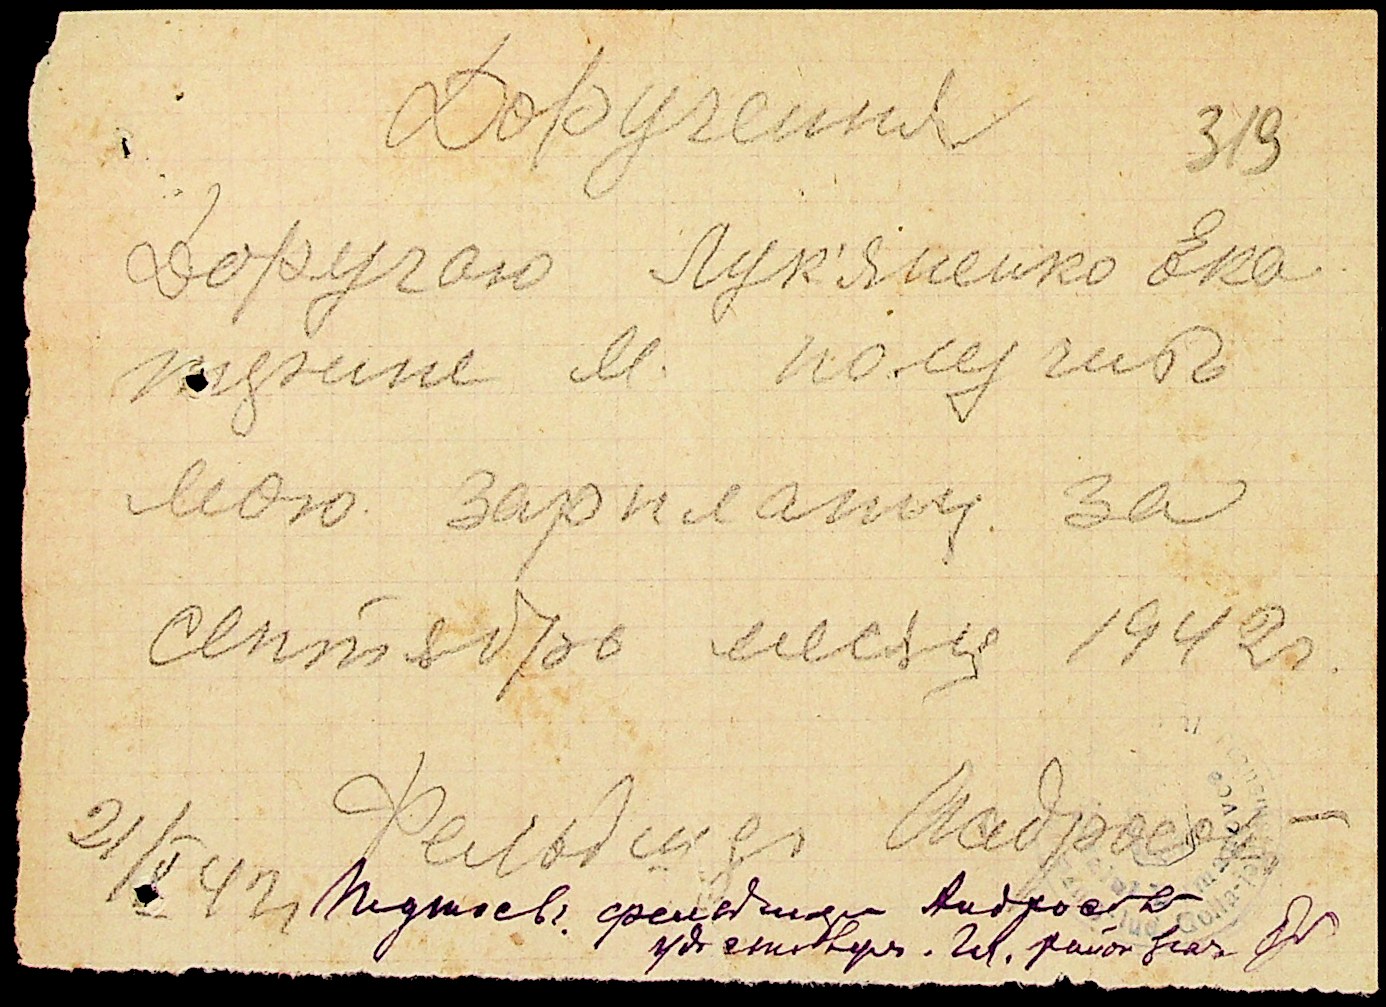 Доручення
319
Доручаю Лук'яненко Ека
терине М. получить
мою зарплату за
сентябрь месяц 1942г.
Фельдшер
21/IX 42г
Подпись фельдшера
удостоверяю. Гл. район врач